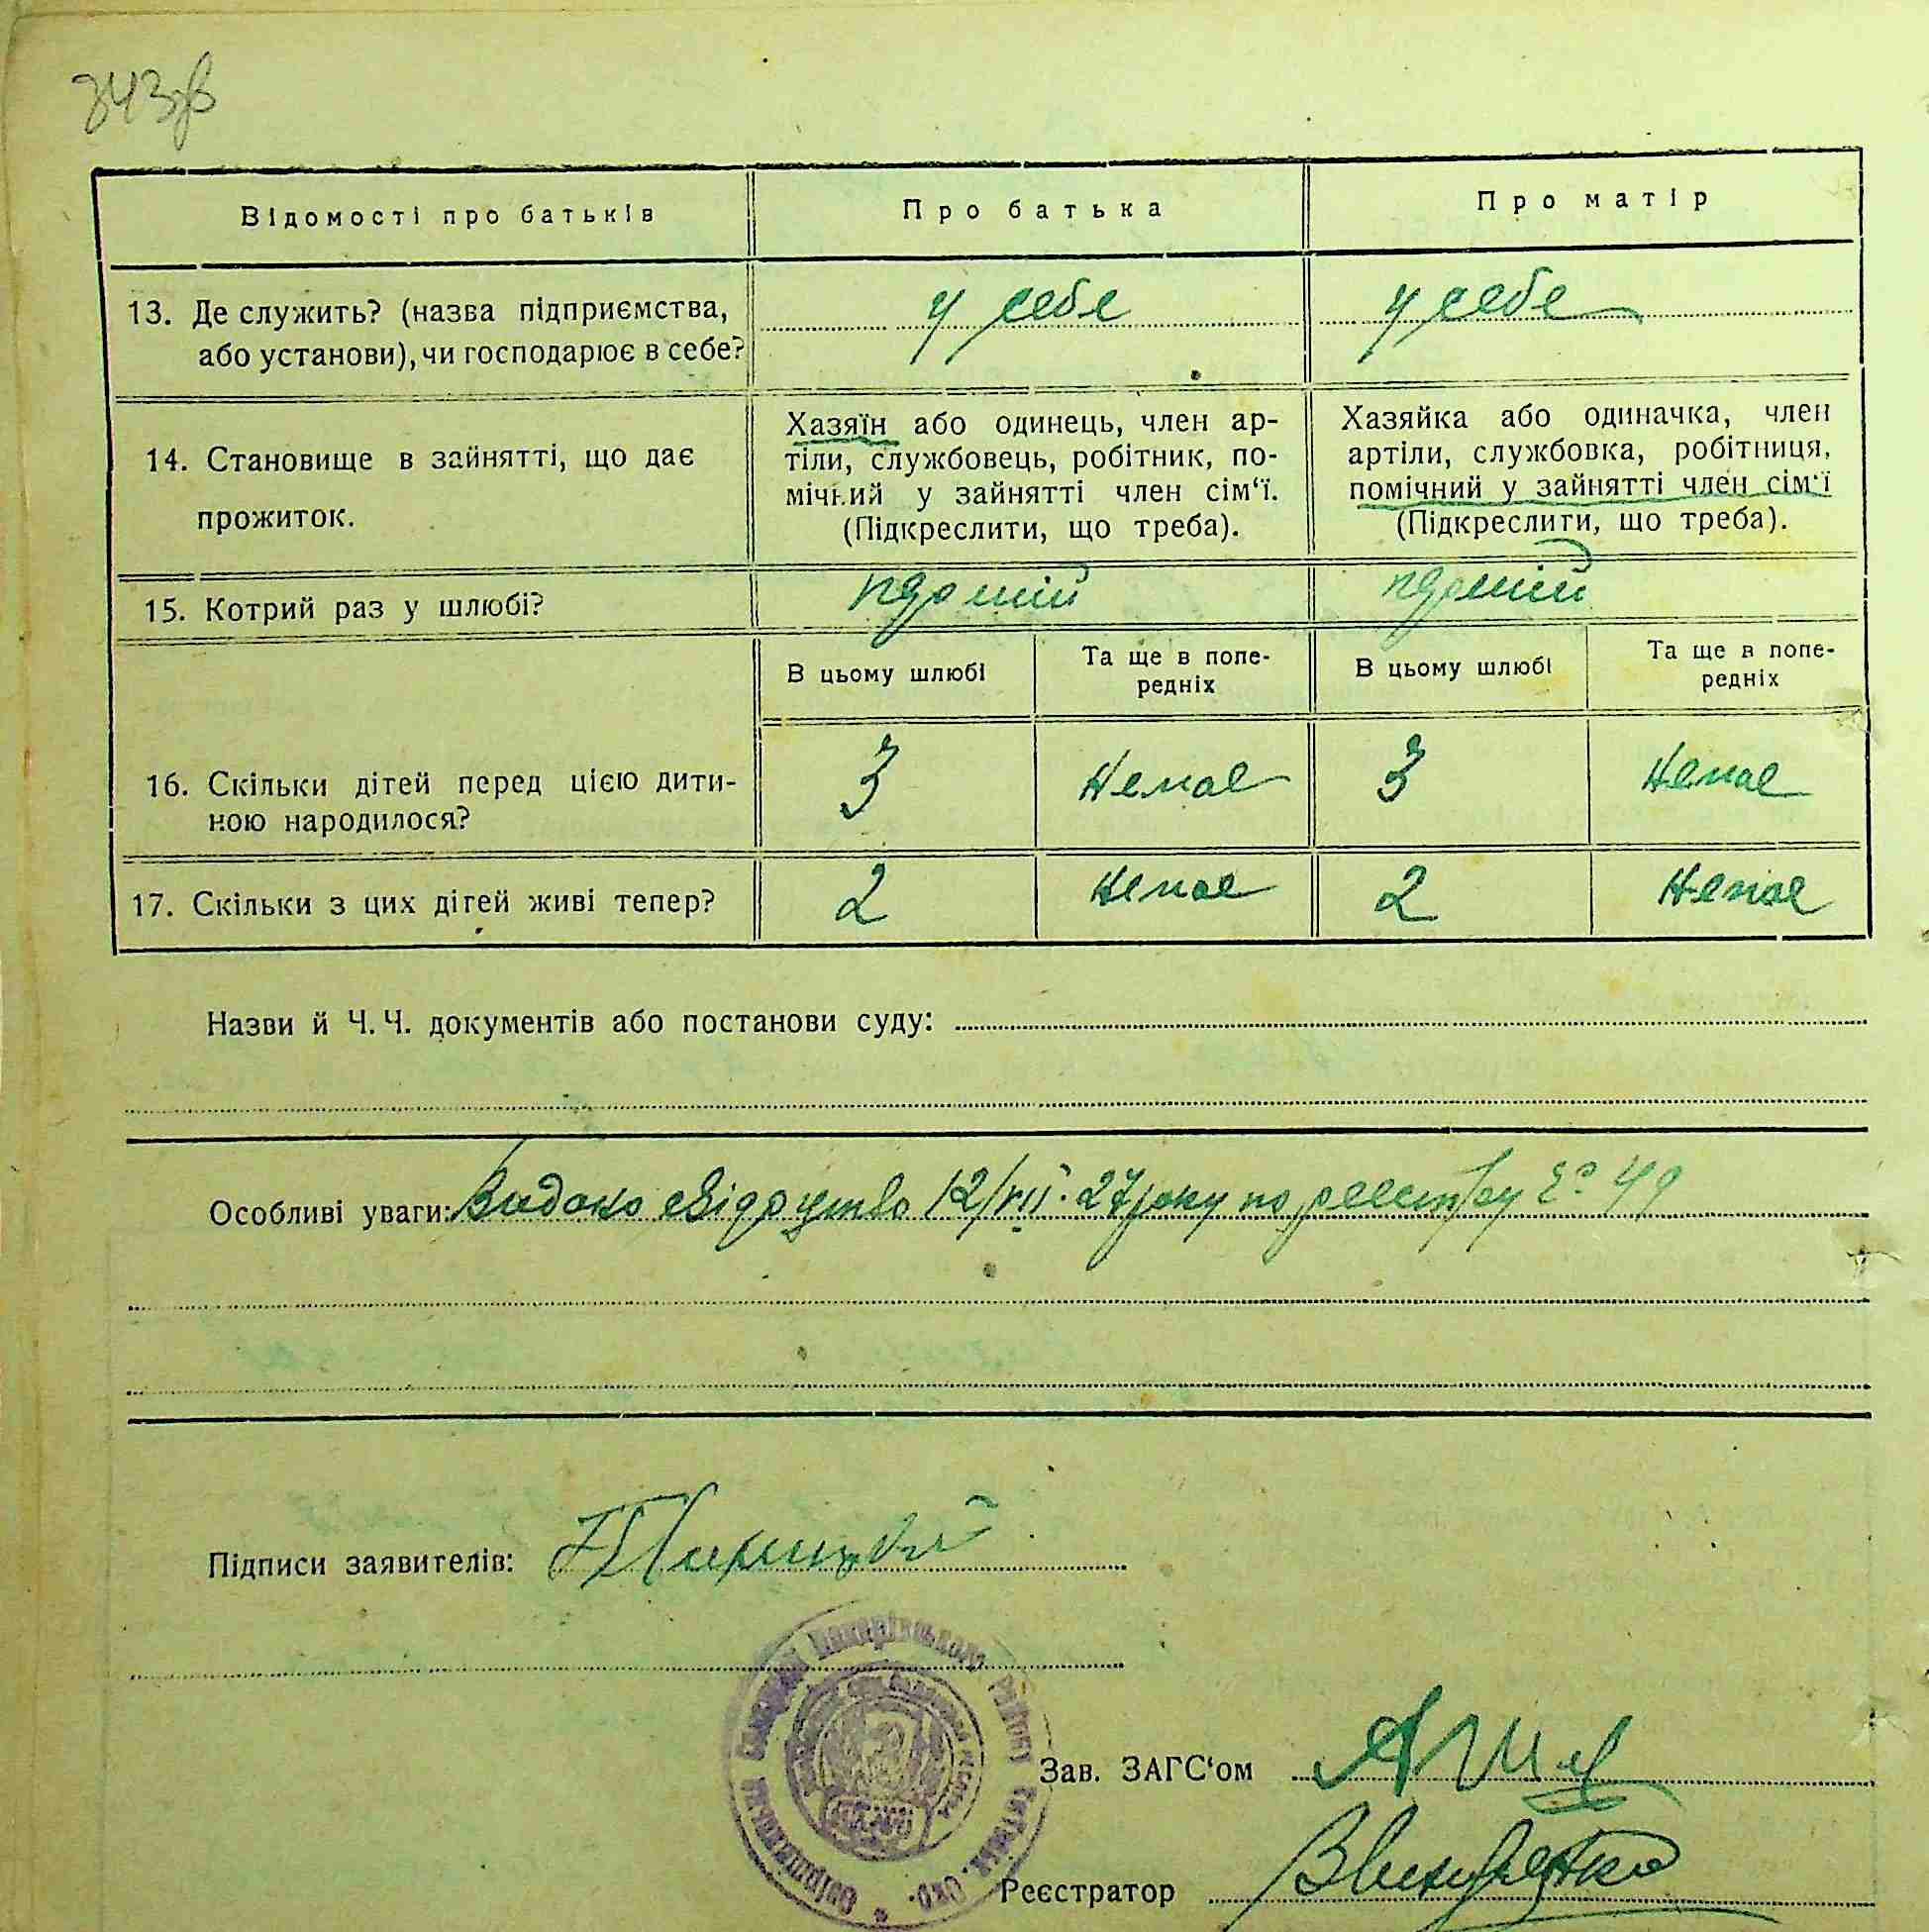 343
Відомості про батьків
Про батька
Про матір
13. Де служить? (назва підприємства,
або установи), чи господарює в себе?
у себе
у себе
14. Становище в зайнятті, що дає
прожиток.
Хазяїн або одинець, член ар-
тіли, службовець, робітник, по-
мічний у зайнятті член сім‘ї.
(Підкреслити, що треба).
Хазяйка або одиначка, член
артіли, службовка, робітниця,
помічний у зайнятті член сім‘ї
(Підкреслити, що треба).
15. Котрий раз у шлюбі?
перший
перший
В цьому шлюбі
Та ще в попе-
редніх
В цьому шлюбі
Та ще в попе-
редніх
16. Скільки дітей перед цією дити-
ною народилося?
3
Немає
3
Немає
17. Скільки з цих дітей живі тепер?
2
Немає
2
Немає
Назви й Ч.Ч. документів або постанови суду:
Особливі уваги: Видано свідоцтво 12/VII 27 року по реєстру № 49
Підписи заявителів:
Зав. ЗАГС‘ом
Реєстратор